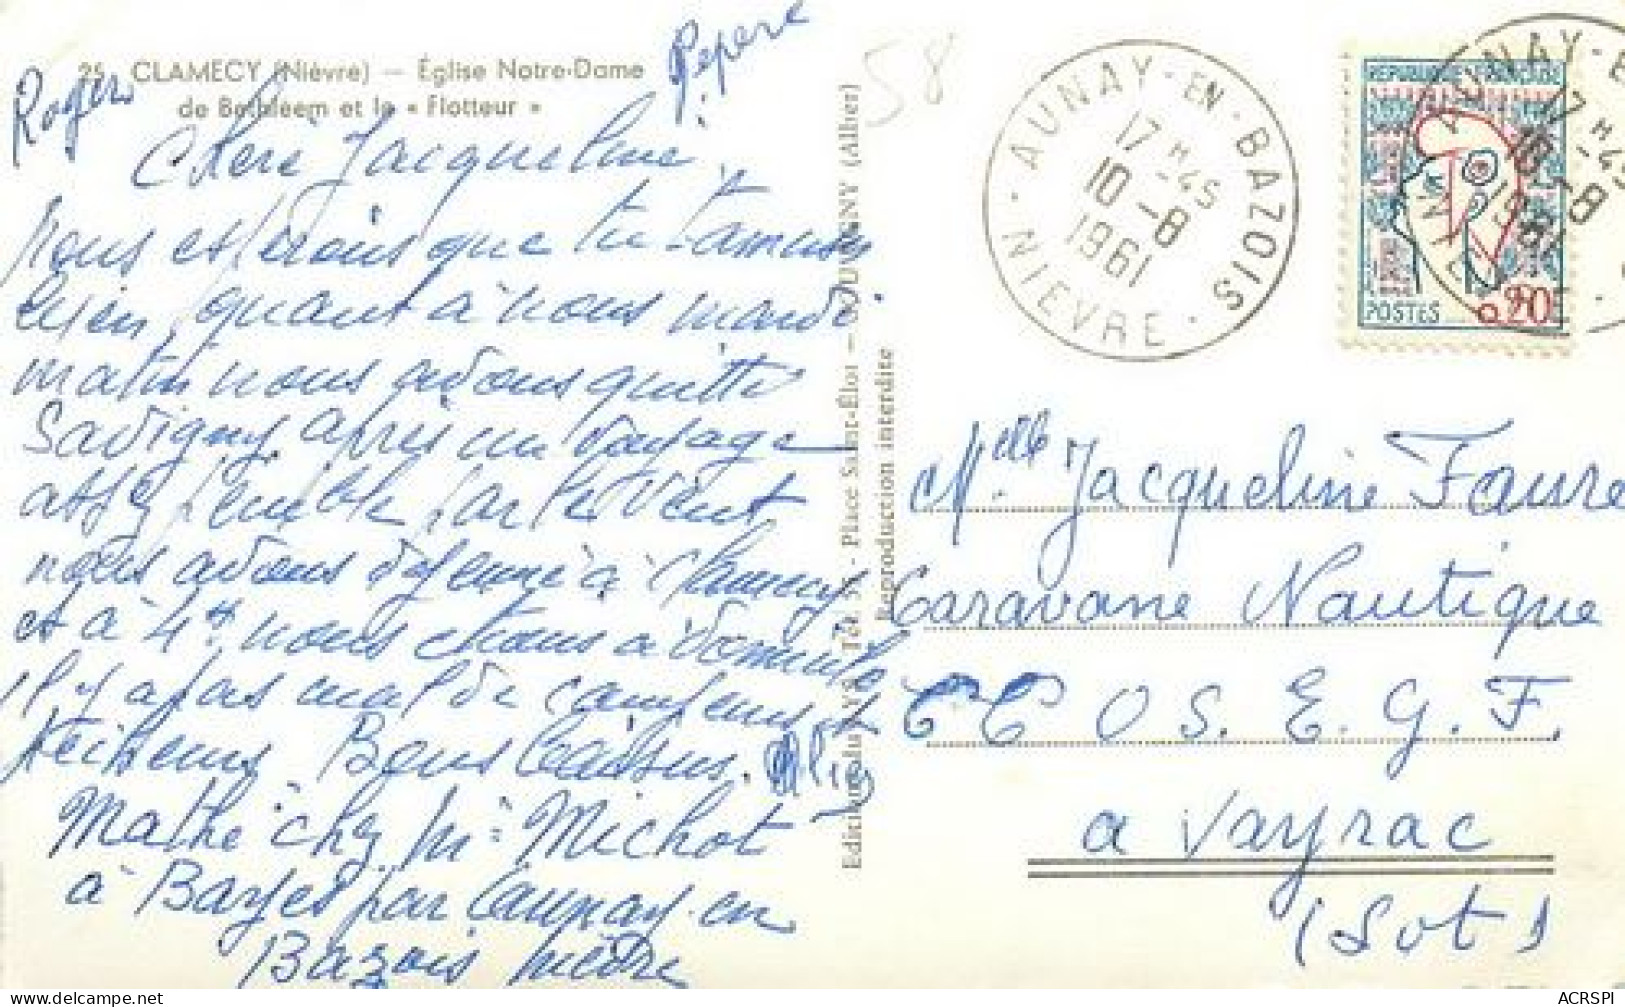 25 CLAMECY (Nièvre) — Église Notre-Dame
de Bethléem et le « Flotteur »
Roger
Pépère
Chère Jacqueline,
nous espérons que tu t'amuses
bien, quant à nous mardi
matin nous avons quitté
Savigny, après un voyage
assez pénible par le vent
nous avons déjeuné à Clamecy
et à 4h nous étions à domicile
il y a pas mal de campeurs et
pêcheurs Bons baisers.
Mathé chez Mr Michot
à Bazses par Aunay-en
Bazois Nièvre
Editions du Lys Tél. 31. - Place Saint-Éloi — SOUVIGNY (Allier)
Reproduction interdite
58
AUNAY-EN-BAZOIS
17 H 45
10 - 8
1961
NIEVRE
REPUBLIQUE FRANÇAISE
POSTES 0,20
AUNAY-E
17 H 45
10 - 8
Melle Jacqueline Faure
Caravane Nautique
CC O S. E. G. F.
a Vayrac
(Lot)
ACRSPI